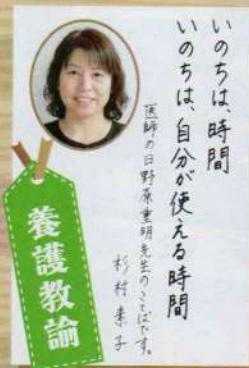 いのちは、時間
いのちは、自分が使える時間
医師の日野原重明先生のことばです。
杉村素子
養護教諭